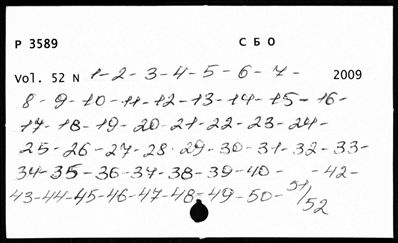 P 3589 С Б О
Vol. 52 N 1-2-3-4-5-6-7- 2009
8-9-10-11-12-13-14-15-16-
17-18-19-20-21-22-23-24-
25-26-27-28-29-30-31-32-33-
34-35-36-37-38-39-40- -42-
43-44-45-46-47-48-49-50-51/52